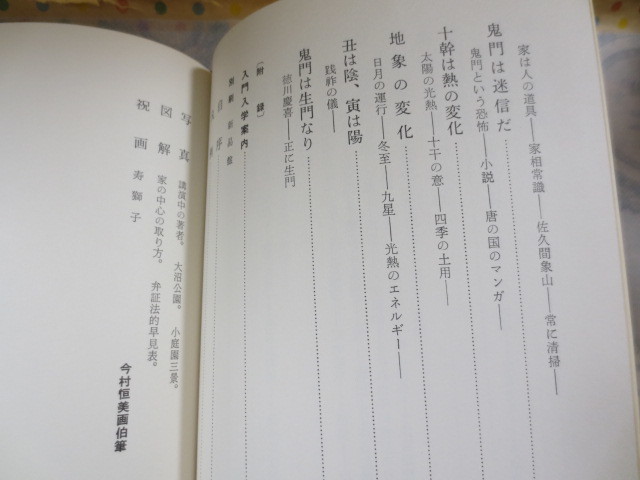 家は人の道具――家相常識――佐久間象山――常に清掃――
鬼門は迷信だ
鬼門という恐怖――小説――唐の国のマンガ――
十幹は熱の変化
太陽の光熱――十干の意――四季の土用――
地象の変化
日月の運行――冬至――九星――光熱のエネルギー――
丑は陰、寅は陽
践祚の儀――
鬼門は生門なり
徳川慶喜――正に生門
〔附録〕
入門入学案内
写真 講演中の著者。 大沼公園。 小庭園三景。
図解 家の中心の取り方。 弁証法的早見表。
祝画 寿獅子
今村恒美画伯筆